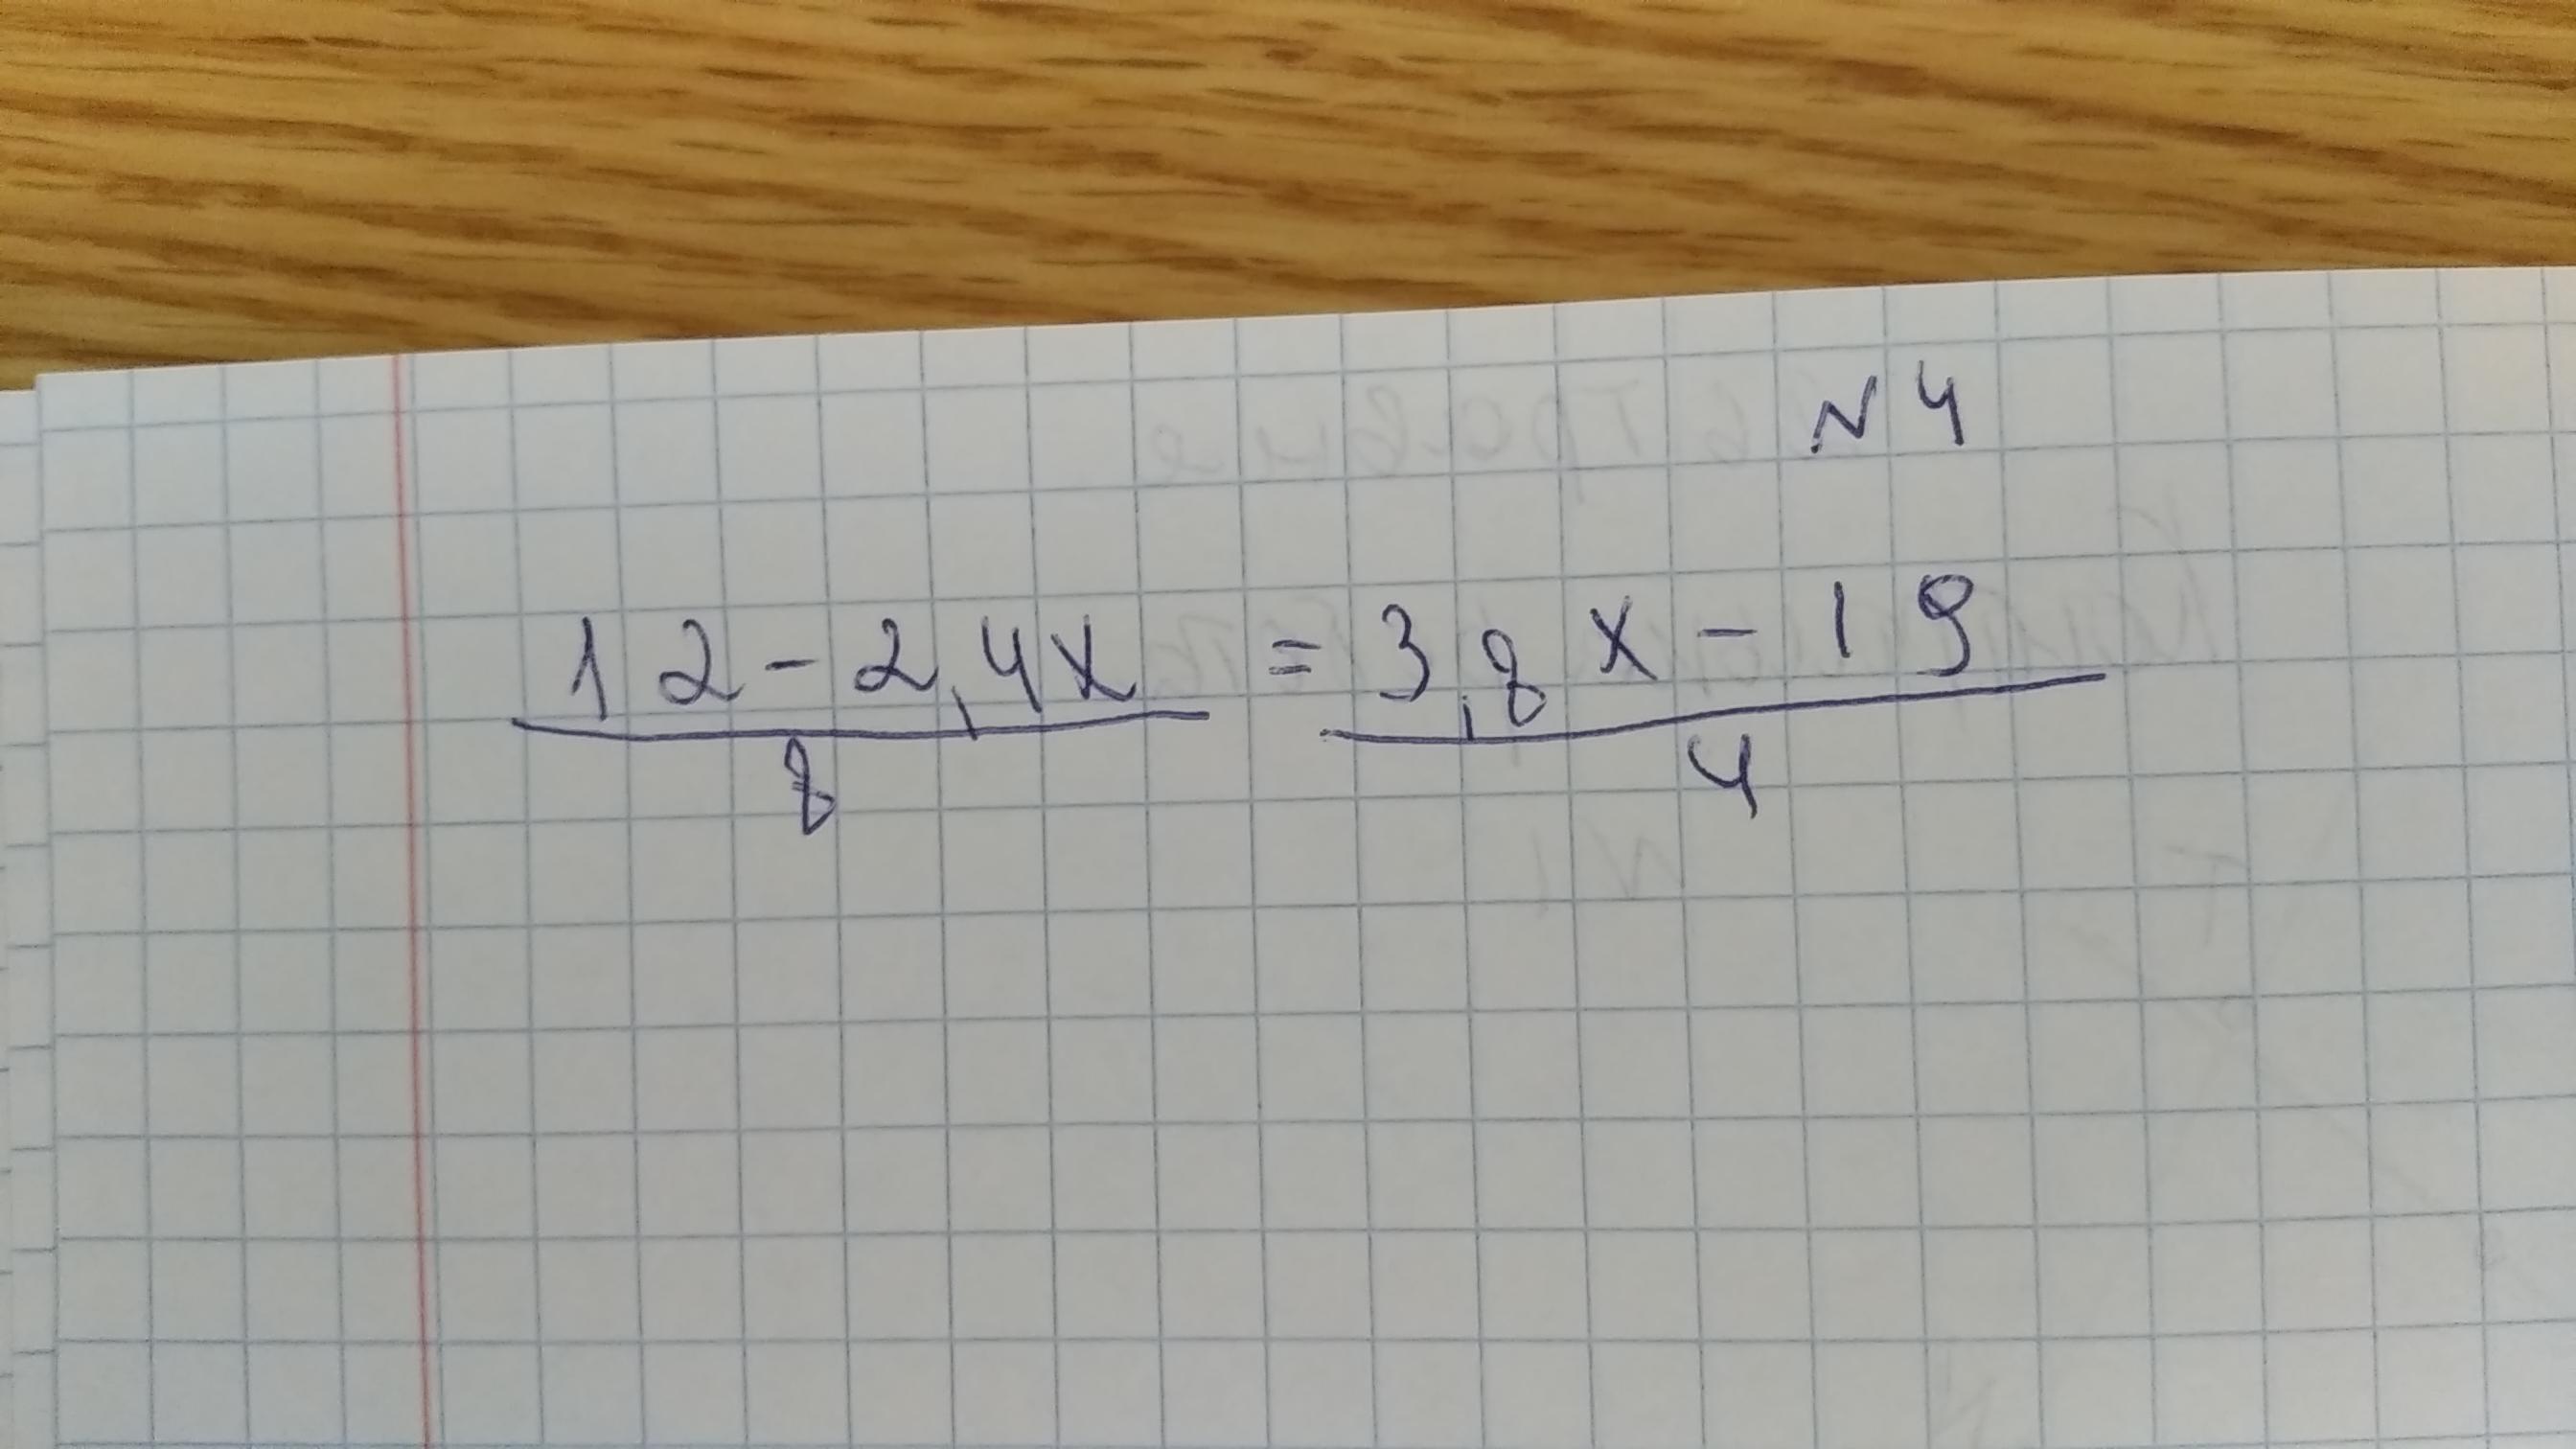 N 4
12 - 2,4x = 3,8x - 19
8 4